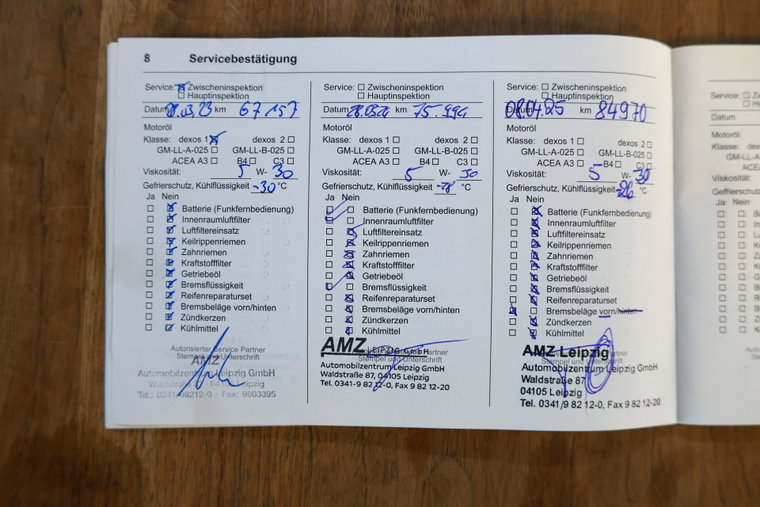 8 Servicebestätigung
Service: ☒ Zwischeninspektion
☐ Hauptinspektion
Datum 28.03.23 km 67.157
Motoröl
Klasse: dexos 1 ☒ dexos 2 ☐
GM-LL-A-025 ☐ GM-LL-B-025 ☐
ACEA A3 ☐ B4 ☐ C3 ☐
Viskosität: 5 W- 30
Gefrierschutz, Kühlflüssigkeit -30 °C
Ja Nein
☐ ☒ Batterie (Funkfernbedienung)
☐ ☒ Innenraumluftfilter
☐ ☒ Luftfiltereinsatz
☐ ☒ Keilrippenriemen
☐ ☒ Zahnriemen
☐ ☒ Kraftstofffilter
☐ ☒ Getriebeöl
☐ ☒ Bremsflüssigkeit
☐ ☒ Reifenreparaturset
☐ ☒ Bremsbeläge vorn/hinten
☐ ☒ Zündkerzen
☐ ☒ Kühlmittel
Autorisierter Service Partner
Stempel und Unterschrift
AMZ
Automobilzentrum Leipzig GmbH
Waldstraße 87, 04105 Leipzig
Tel.: 0341/98212-0 · Fax: 9803395
Service: ☐ Zwischeninspektion
☐ Hauptinspektion
Datum 28.03.24 km 75.994
Motoröl
Klasse: dexos 1 ☐ dexos 2 ☐
GM-LL-A-025 ☐ GM-LL-B-025 ☐
ACEA A3 ☐ B4 ☐ C3 ☐
Viskosität: 5 W- 30
Gefrierschutz, Kühlflüssigkeit -28 °C
Ja Nein
☒ ☐ Batterie (Funkfernbedienung)
☒ ☐ Innenraumluftfilter
☐ ☒ Luftfiltereinsatz
☐ ☒ Keilrippenriemen
☐ ☒ Zahnriemen
☐ ☒ Kraftstofffilter
☐ ☒ Getriebeöl
☒ ☐ Bremsflüssigkeit
☐ ☒ Reifenreparaturset
☐ ☒ Bremsbeläge vorn/hinten
☐ ☒ Zündkerzen
☐ ☒ Kühlmittel
Partner
Stempel und Unterschrift
AMZ Leipzig GmbH
Automobilzentrum Leipzig GmbH
Waldstraße 87, 04105 Leipzig
Tel. 0341-9 82 12-0, Fax 9 82 12-20
Service: ☐ Zwischeninspektion
☐ Hauptinspektion
Datum 08.04.25 km 84970
Motoröl
Klasse: dexos 1 ☐ dexos 2 ☐
GM-LL-A-025 ☐ GM-LL-B-025 ☐
ACEA A3 ☐ B4 ☐ C3 ☐
Viskosität: 5 W- 30
Gefrierschutz, Kühlflüssigkeit -26 °C
Ja Nein
☐ ☒ Batterie (Funkfernbedienung)
☐ ☒ Innenraumluftfilter
☐ ☒ Luftfiltereinsatz
☐ ☒ Keilrippenriemen
☐ ☒ Zahnriemen
☐ ☒ Kraftstofffilter
☐ ☒ Getriebeöl
☐ ☒ Bremsflüssigkeit
☐ ☒ Reifenreparaturset
☒ ☐ Bremsbeläge vorn/hinten
☐ ☒ Zündkerzen
☐ ☒ Kühlmittel
AMZ Leipzig
Automobilzentrum Leipzig GmbH
Waldstraße 87
04105 Leipzig
Tel. 0341/9 82 12-0, Fax 9 82 12-20
Service: ☐ Z
☐ H
Datum
Motoröl
Klasse: dexos
GM-LL-A-0
ACEA
Viskosität:
Gefrierschutz,
Ja Nein
☐ ☐ Ba
☐ ☐ In
☐ ☐ Lu
☐ ☐ Ke
☐ ☐ Za
☐ ☐ Kr
☐ ☐ Ge
☐ ☐ Br
☐ ☐ Re
☐ ☐ Br
☐ ☐ Zü
☐ ☐ Kü